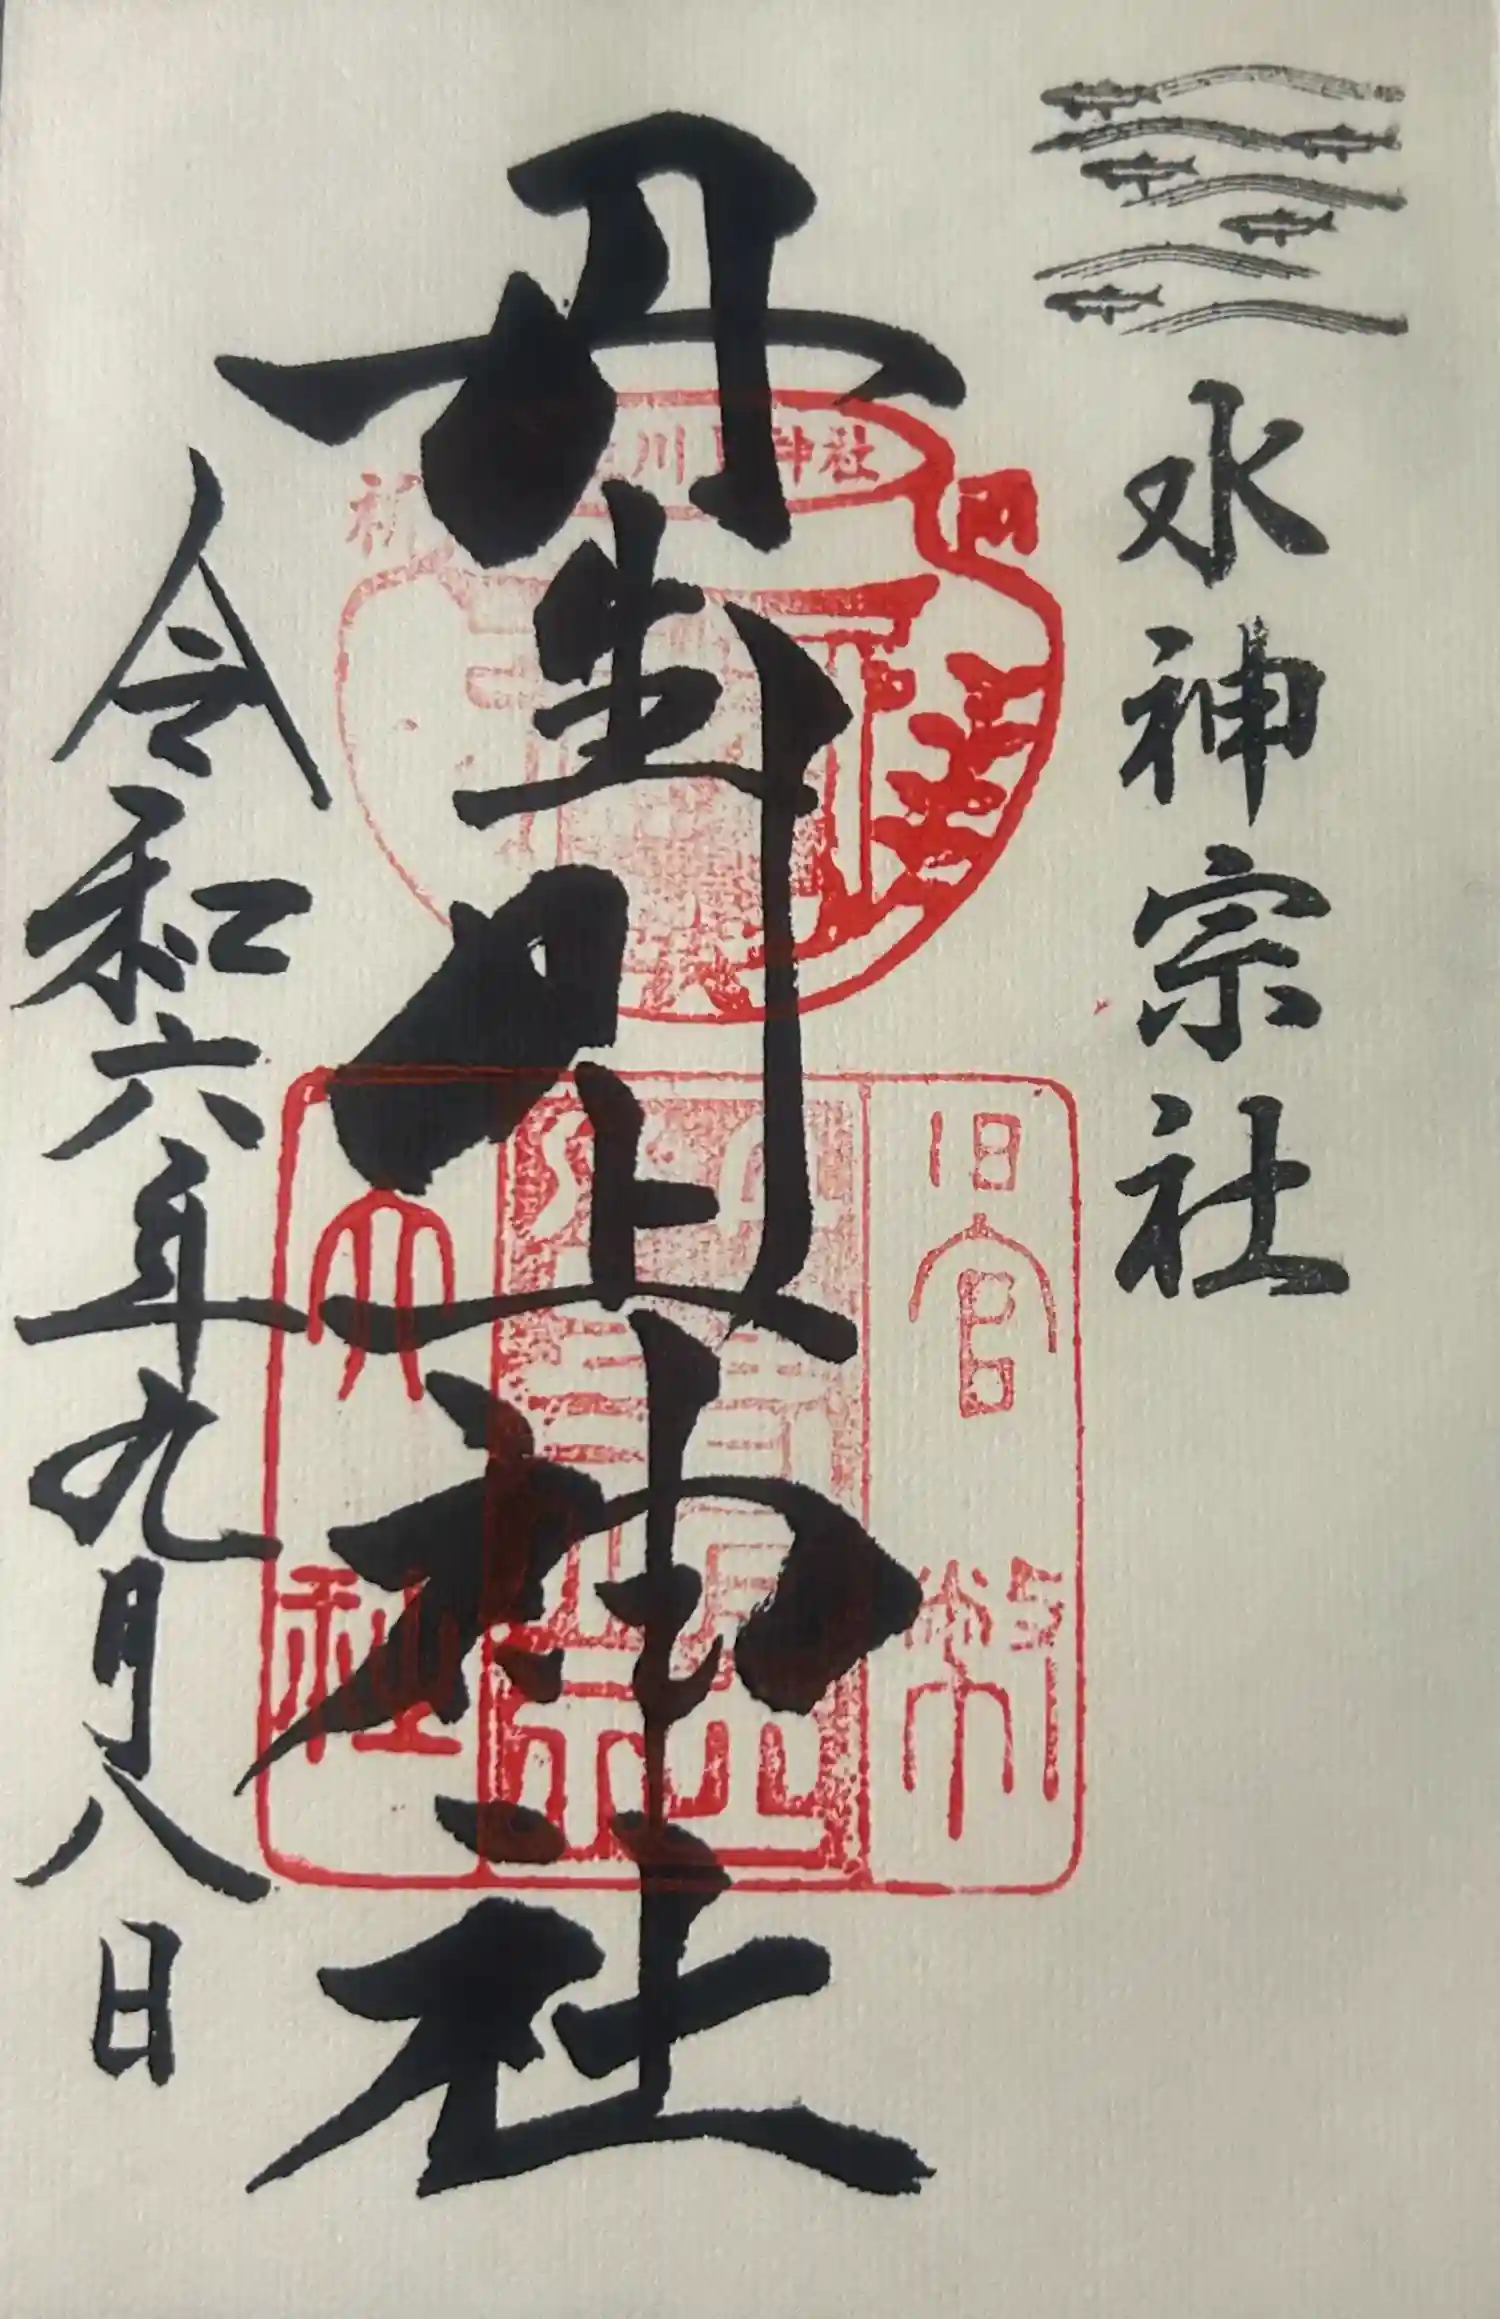 水神宗社
丹生川上神社
令和六年九月八日
旧官幣
大社